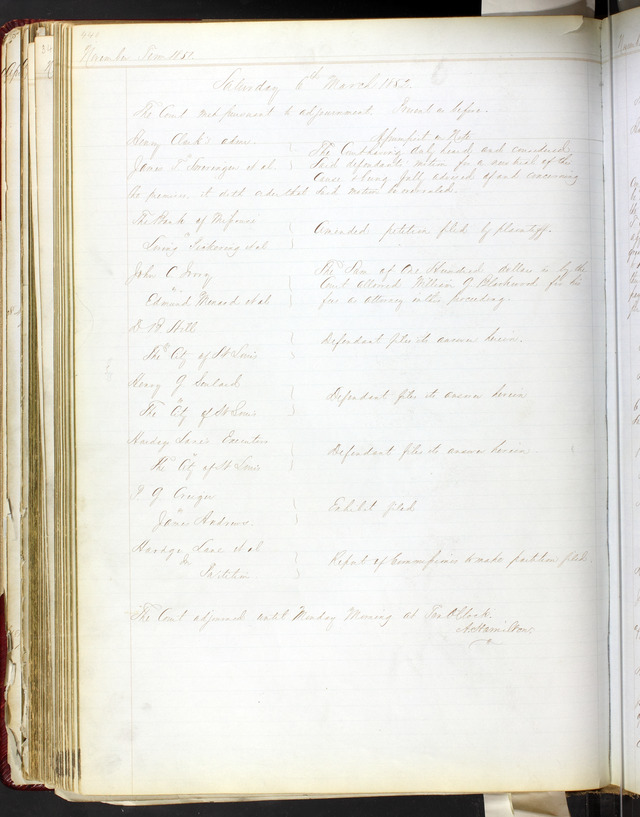 November Term 1851
Saturday 6th March 1852.
The Court met pursuant to adjournment. Present as before.
Henry Clark's admr.
vs
James T. Swearingen et al.
Assumpsit on Note
The Court having duly heard and considered
said defendants motion for a new trial of the
cause & being fully advised of and concerning
the premises, it doth order that said motion be overruled.
The Bank of Missouri
vs
Pickering et al
Amended petition filed by plaintiff.
John C. Ivory
vs
Edmund Menard et al
The Sum of One Hundred dollars is by the
Court allowed William G. Blackwood for his
fee as attorney in this proceeding.
D. H.
vs
The City of St Louis
Defendant files its answer herein.
Henry G. Soulard
vs
The City of St Louis
Defendant files its answer herein
Hardage Lane's Executors
vs
The City of St Louis
Defendant files its answer herein
vs
James Andrews.
Exhibit filed
Hardage Lane et al
Partition
Report of Commissioners to make partition filed.
The Court adjourned until Monday Morning at Ten O'Clock.
A. Hamilton.